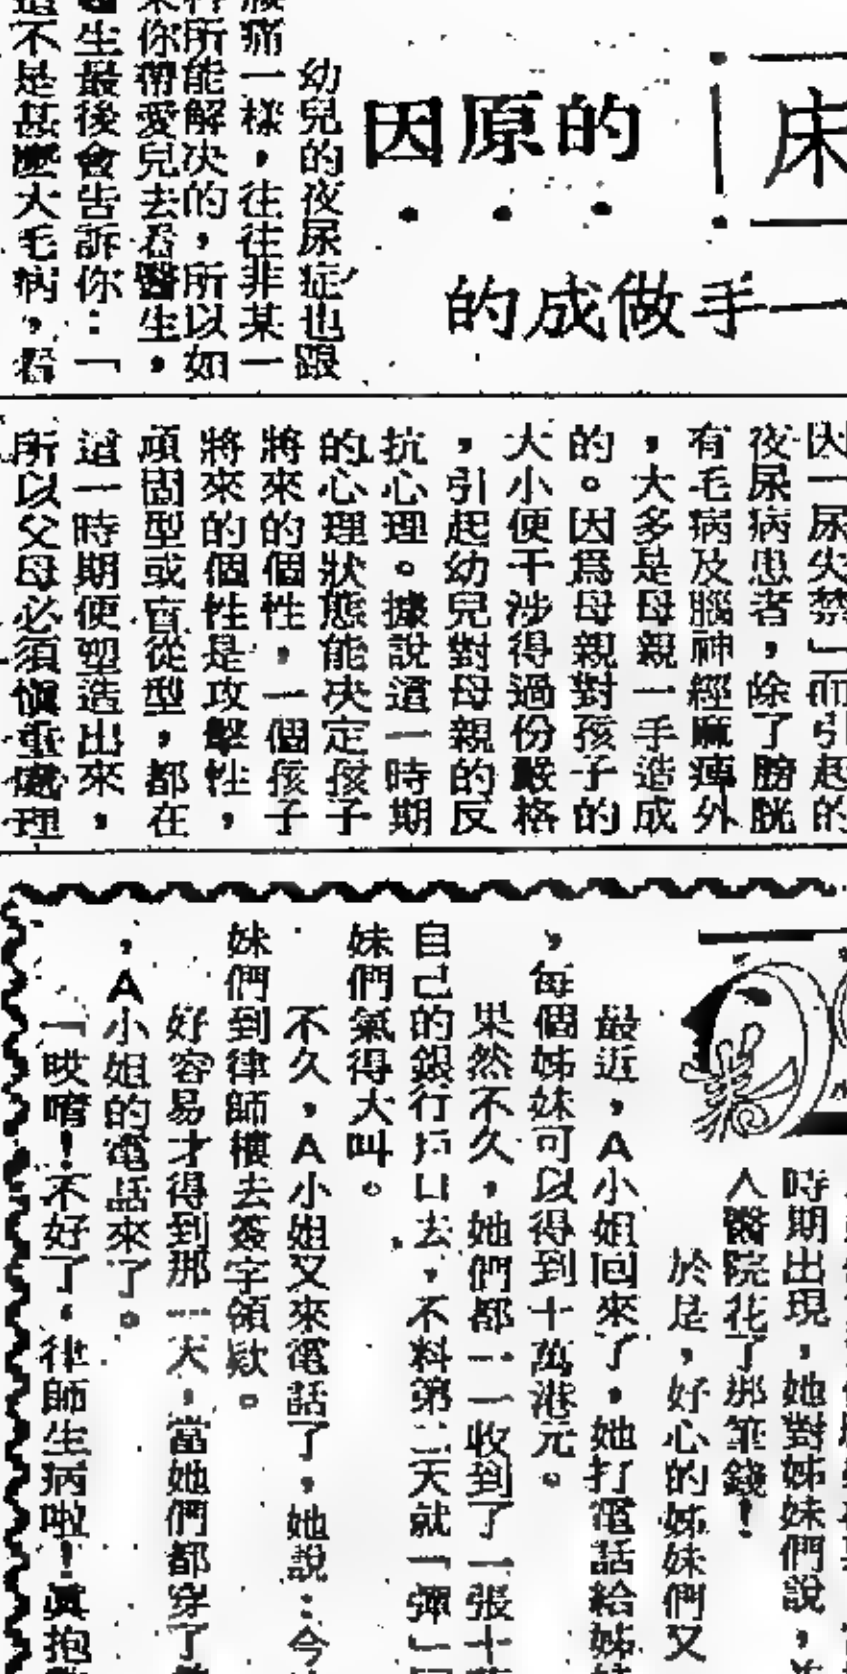 床
的原因
一手做成的
幼兒的夜尿症也跟
腰痛一樣，往往非某一
所能解決的，所以如
你帶愛兒去看醫生，
生最後會告訴你：「
這不是甚麼大毛病，看
因「尿失禁」而引起的
夜尿病患者，除了膀胱
有毛病及腦神經麻痺外
，大多是母親一手造成
的。因為母親對孩子的
大小便干涉得過份嚴格
，引起幼兒對母親的反
抗心理。據說這一時期
的心理狀態能決定孩子
將來的個性，一個孩子
將來的個性是攻擊性，
頑固型或盲從型，都在
這一時期便塑造出來，
所以父母必須慎重處理
時期出現，她對姊妹們說，
人醫院花了那筆錢！
於是，好心的姊妹們又
最近，A小姐回來了，她打電話給姊
，每個姊妹可以得到十萬港元。
果然不久，她們都一一收到了一張十
自己的銀行戶口去，不料第二天就「彈」
妹們氣得大叫。
不久，A小姐又來電話了，她說：今
妹們到律師樓去簽字領欵。
好容易才得到那一天，當她們都穿了
，A小姐的電話來了。
「哎唷！不好了，律師生病啦！眞抱